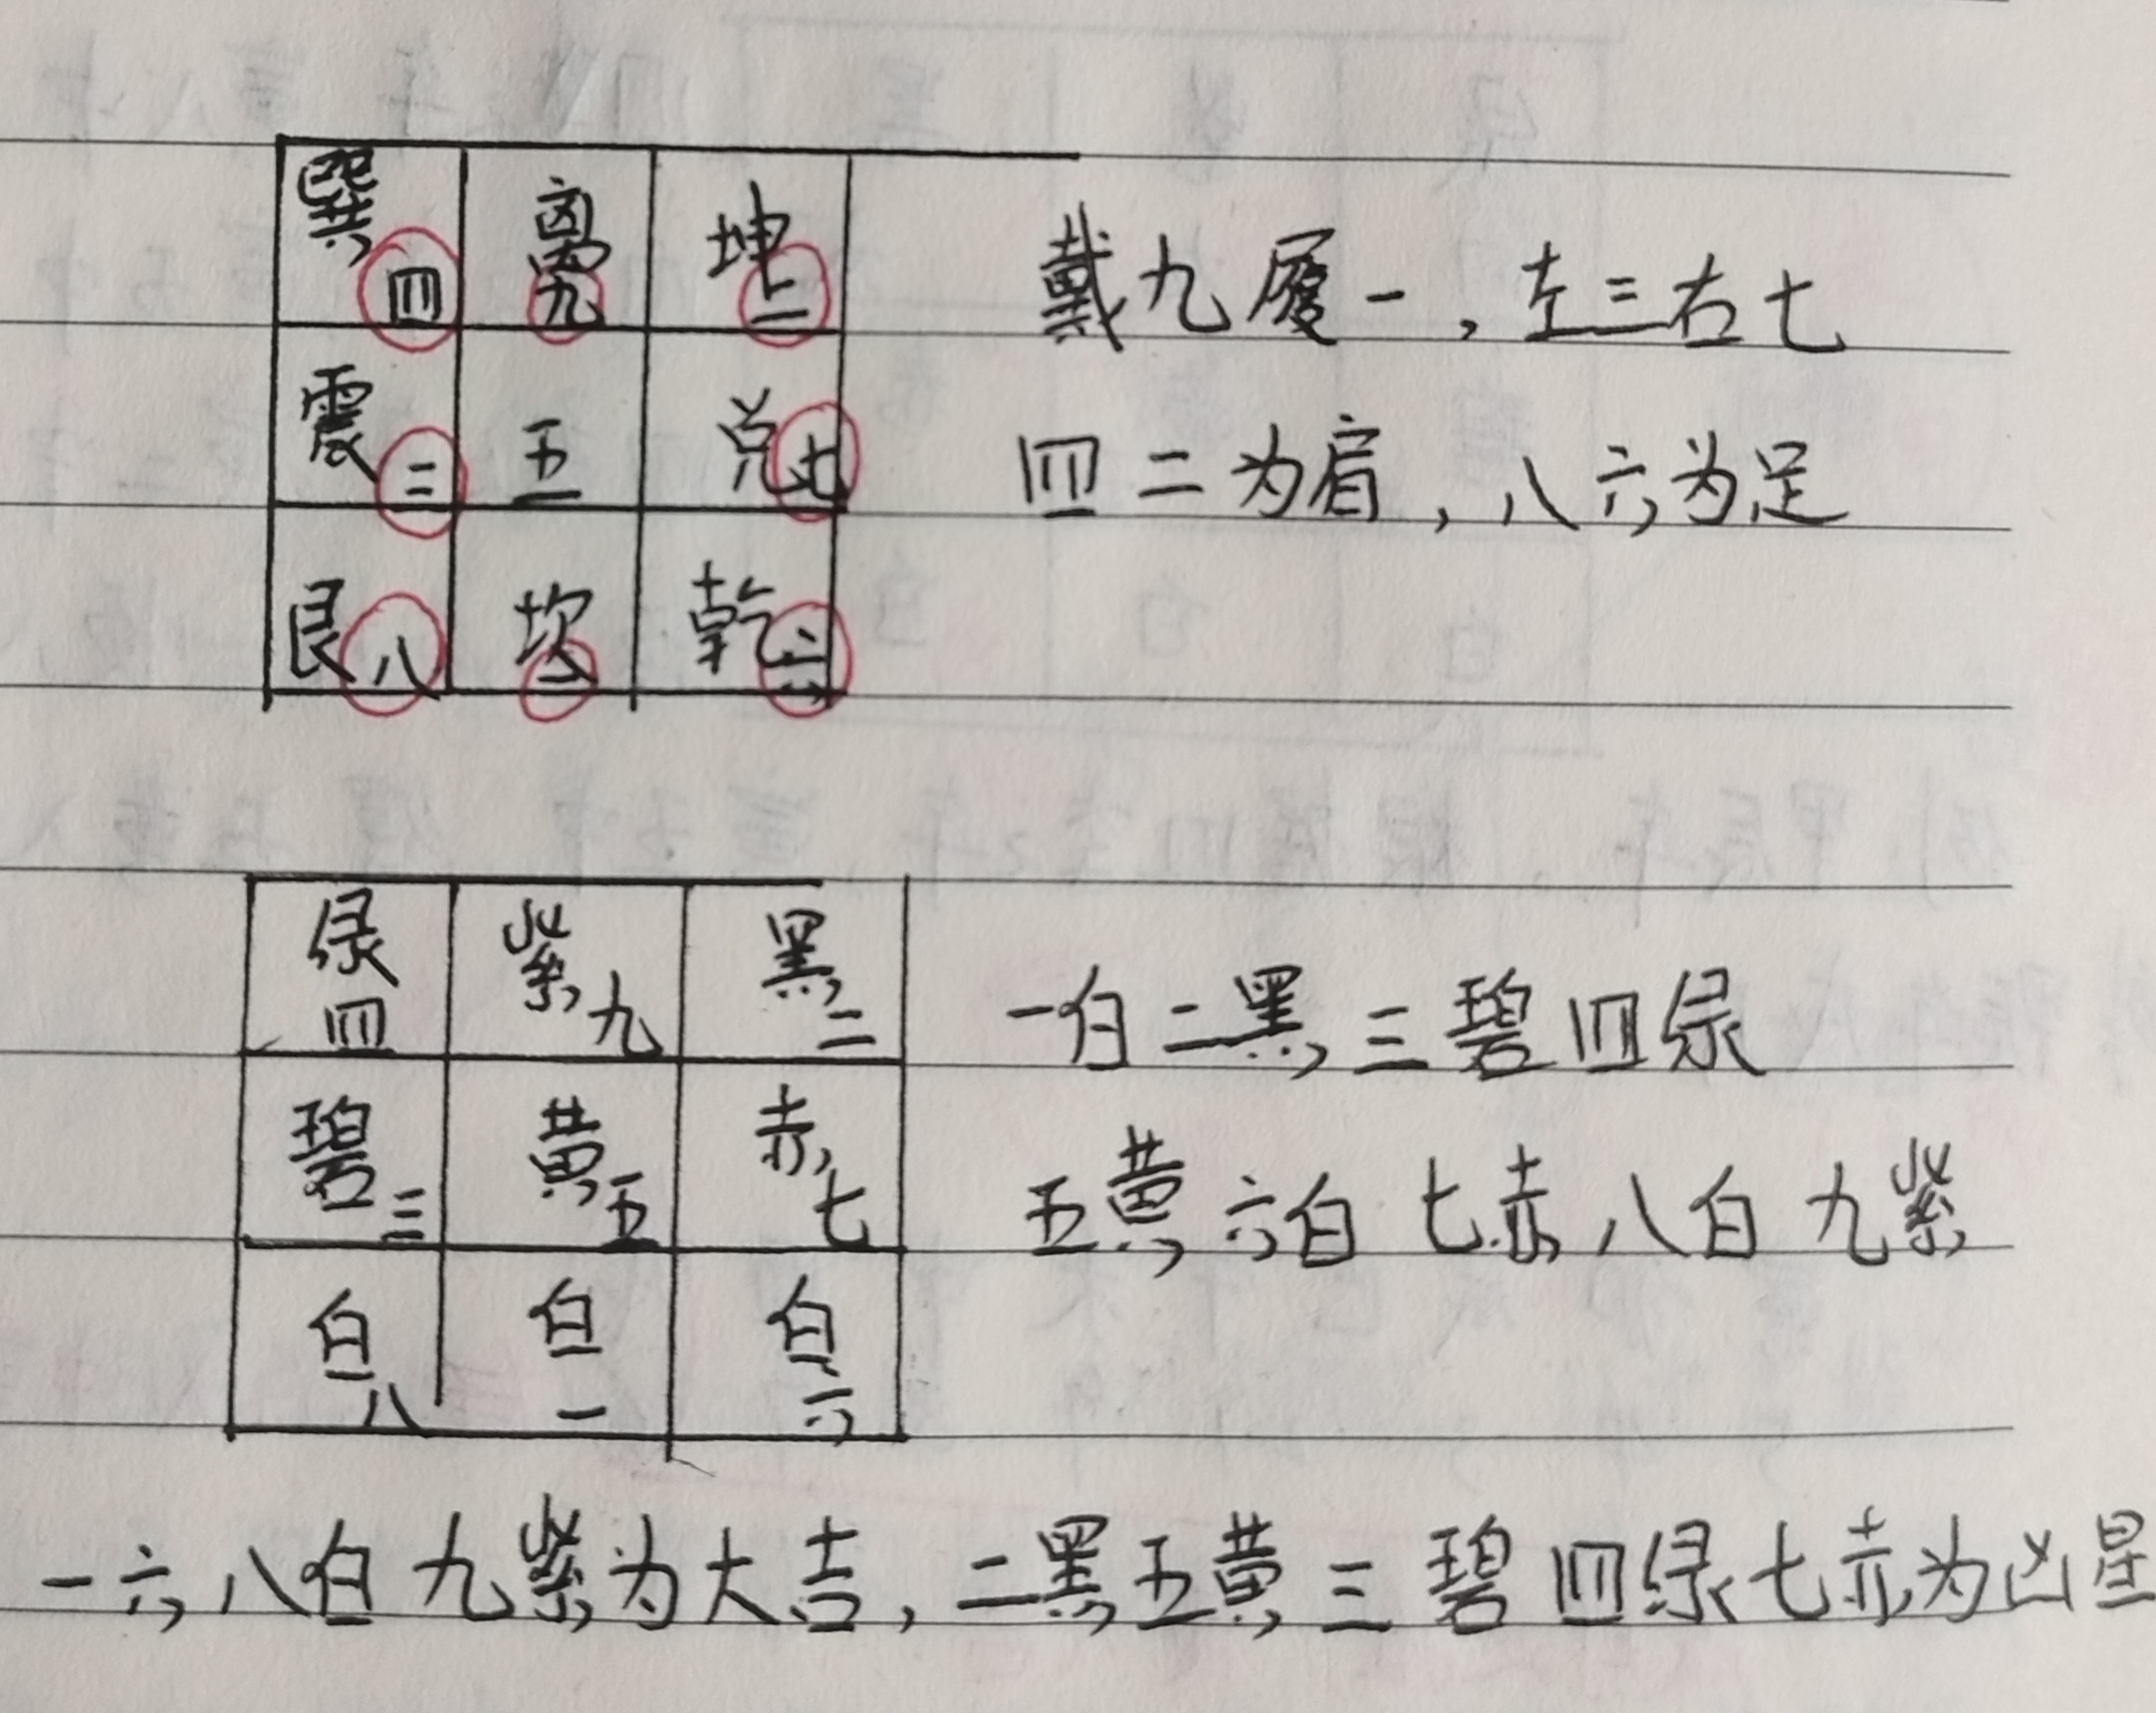 巽四 离九 坤二
震三 五 兑七
艮八 坎一 乾六
戴九履一，左三右七
四二为肩，八六为足
绿四 紫九 黑二
碧三 黄五 赤七
白八 白一 白六
一白二黑三碧四绿
五黄六白七赤八白九紫
一六八白九紫为大吉，二黑五黄三碧四绿七赤为凶星